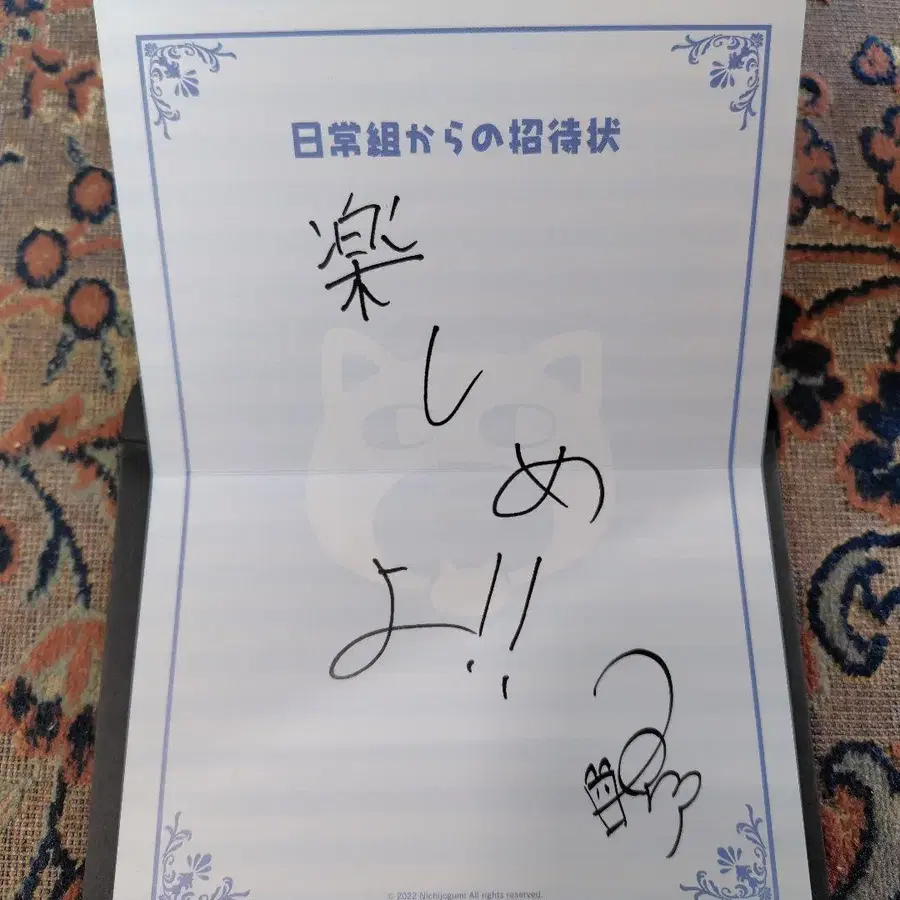 日常組からの招待状
楽しめ
よ!!
© 2022 Nichijogumi All rights reserved.